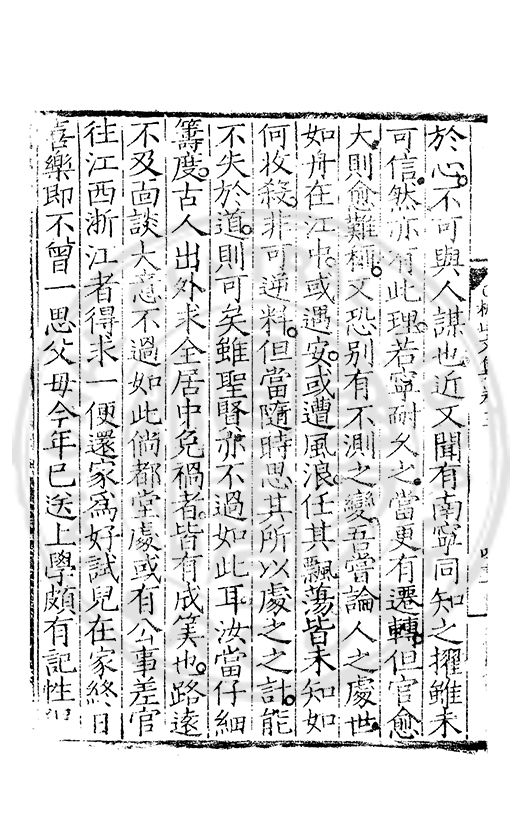 於心不可與人謀也近又聞有南寧同知之擢雖未
可信然亦有此理若寧耐久之當更有遷轉但官愈
大則愈難稱又恐别有不測之變吾嘗論人之處世
如舟在江中或遇安或遭風浪任其飄蕩皆未知如
何收殺非可逆料但當隨時思其所以處之之計能
不失於道則可矣雖聖賢亦不過如此耳汝當仔細
籌度古人出外求全居中免禍者皆有成筭也路遠
不及面談大意不過如此倘都堂處或有公事差官
往江西浙江者得求一便還家爲好試兒在家終日
喜樂即不曾一思父母今年已送上學頗有記性